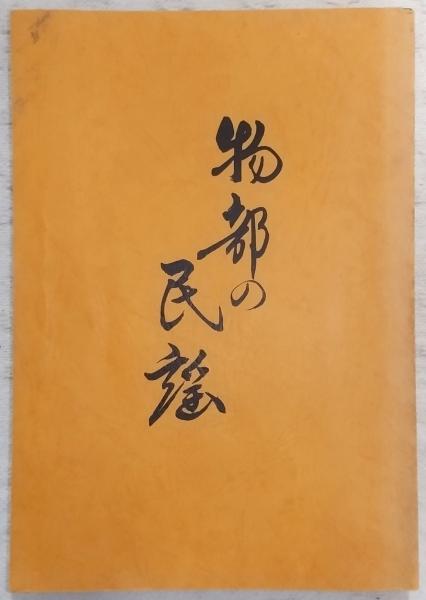 物部の民謡